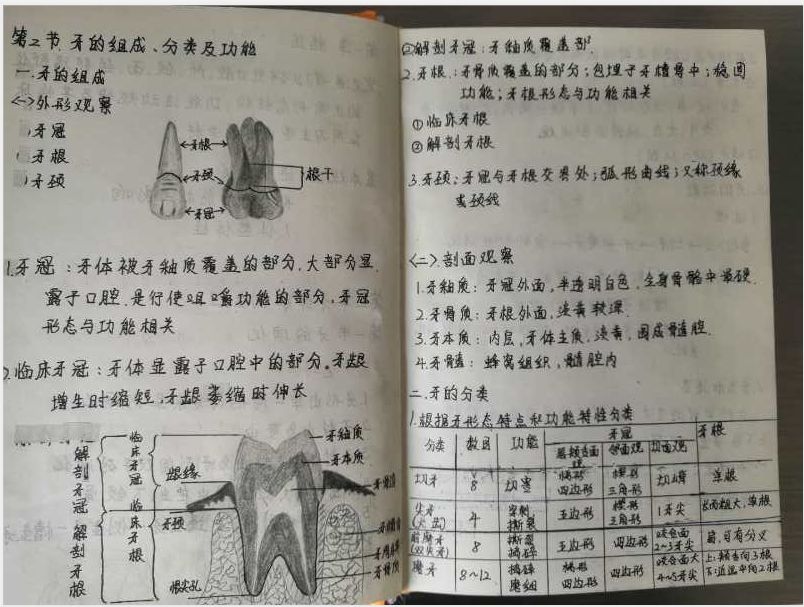 第二节 牙的组成、分类及功能
一.牙的组成
<一>外形观察
牙冠
牙根
牙颈
牙根
牙颈
牙冠
根干
1.牙冠：牙体被牙釉质覆盖的部分，大部分显
露于口腔，是行使咀嚼功能的部分，牙冠
形态与功能相关
临床牙冠：牙体显露于口腔中的部分。牙龈
增生时缩短，牙龈萎缩时伸长
解剖牙冠
解剖牙根
临床牙冠
临床牙根
龈缘
牙颈
根尖孔
牙釉质
牙本质
牙骨质
②解剖牙冠：牙釉质覆盖部
2.牙根：牙骨质覆盖的部分；包埋于牙槽骨中；稳固
功能；牙根形态与功能相关
①临床牙根
②解剖牙根
3.牙颈：牙冠与牙根交界处；弧形曲线；又称颈缘
或颈线
<二>.剖面观察
1.牙釉质：牙冠外面，半透明白色，全身骨骼中最硬.
2.牙骨质：牙根外面，淡黄
3.牙本质：内层，牙体主质，淡黄，围成髓腔
4.牙髓：蜂窝组织，髓腔内
二.牙的分类
1.根据牙形态特点和功能特性分类
分类 数目 功能 牙冠 牙根
唇颊舌面观 邻面观 切面观
切牙 8 切割 梯形 四边形 楔形 三角形 切嵴 单根
尖牙 (犬齿) 4 穿刺 撕裂 五边形 楔形 三角形 1牙尖 长而粗大，单根
前磨牙 (双尖牙) 8 撕裂 捣碎 五边形 四边形 咬合面 2~3牙尖 扁，可有分叉
磨牙 8~12 捣碎 磨细 梯形 四边形 四边形 咬合面大 4~5牙尖 上：颊舌向3根 下：近远中向2根